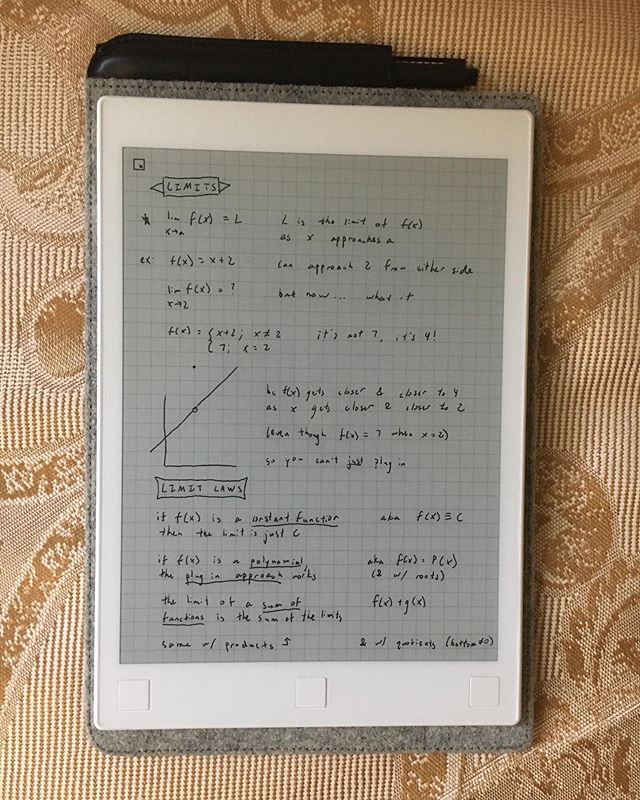 LIMITS
* lim f(x) = L
x→a
L is the limit of f(x)
as x approaches a
ex: f(x) = x+2
can approach 2 from either side
lim f(x) = ?
x→2
but now... what if
f(x) = { x+2; x≠2
{ 7; x=2
it's not 7, it's 4!
bc f(x) gets closer & closer to 4
as x gets closer & closer to 2
(even though f(x) = 7 when x=2)
so you can't just plug in
LIMIT LAWS
if f(x) is a constant function
then the limit is just C
aka f(x) ≡ C
if f(x) is a polynomial,
the plug in approach works
aka f(x) = P(x)
(& w/ roots)
the limit of a sum of
functions is the sum of the limits
f(x)+g(x)
same w/ products ↑
& w/ quotients (bottom ≠0)